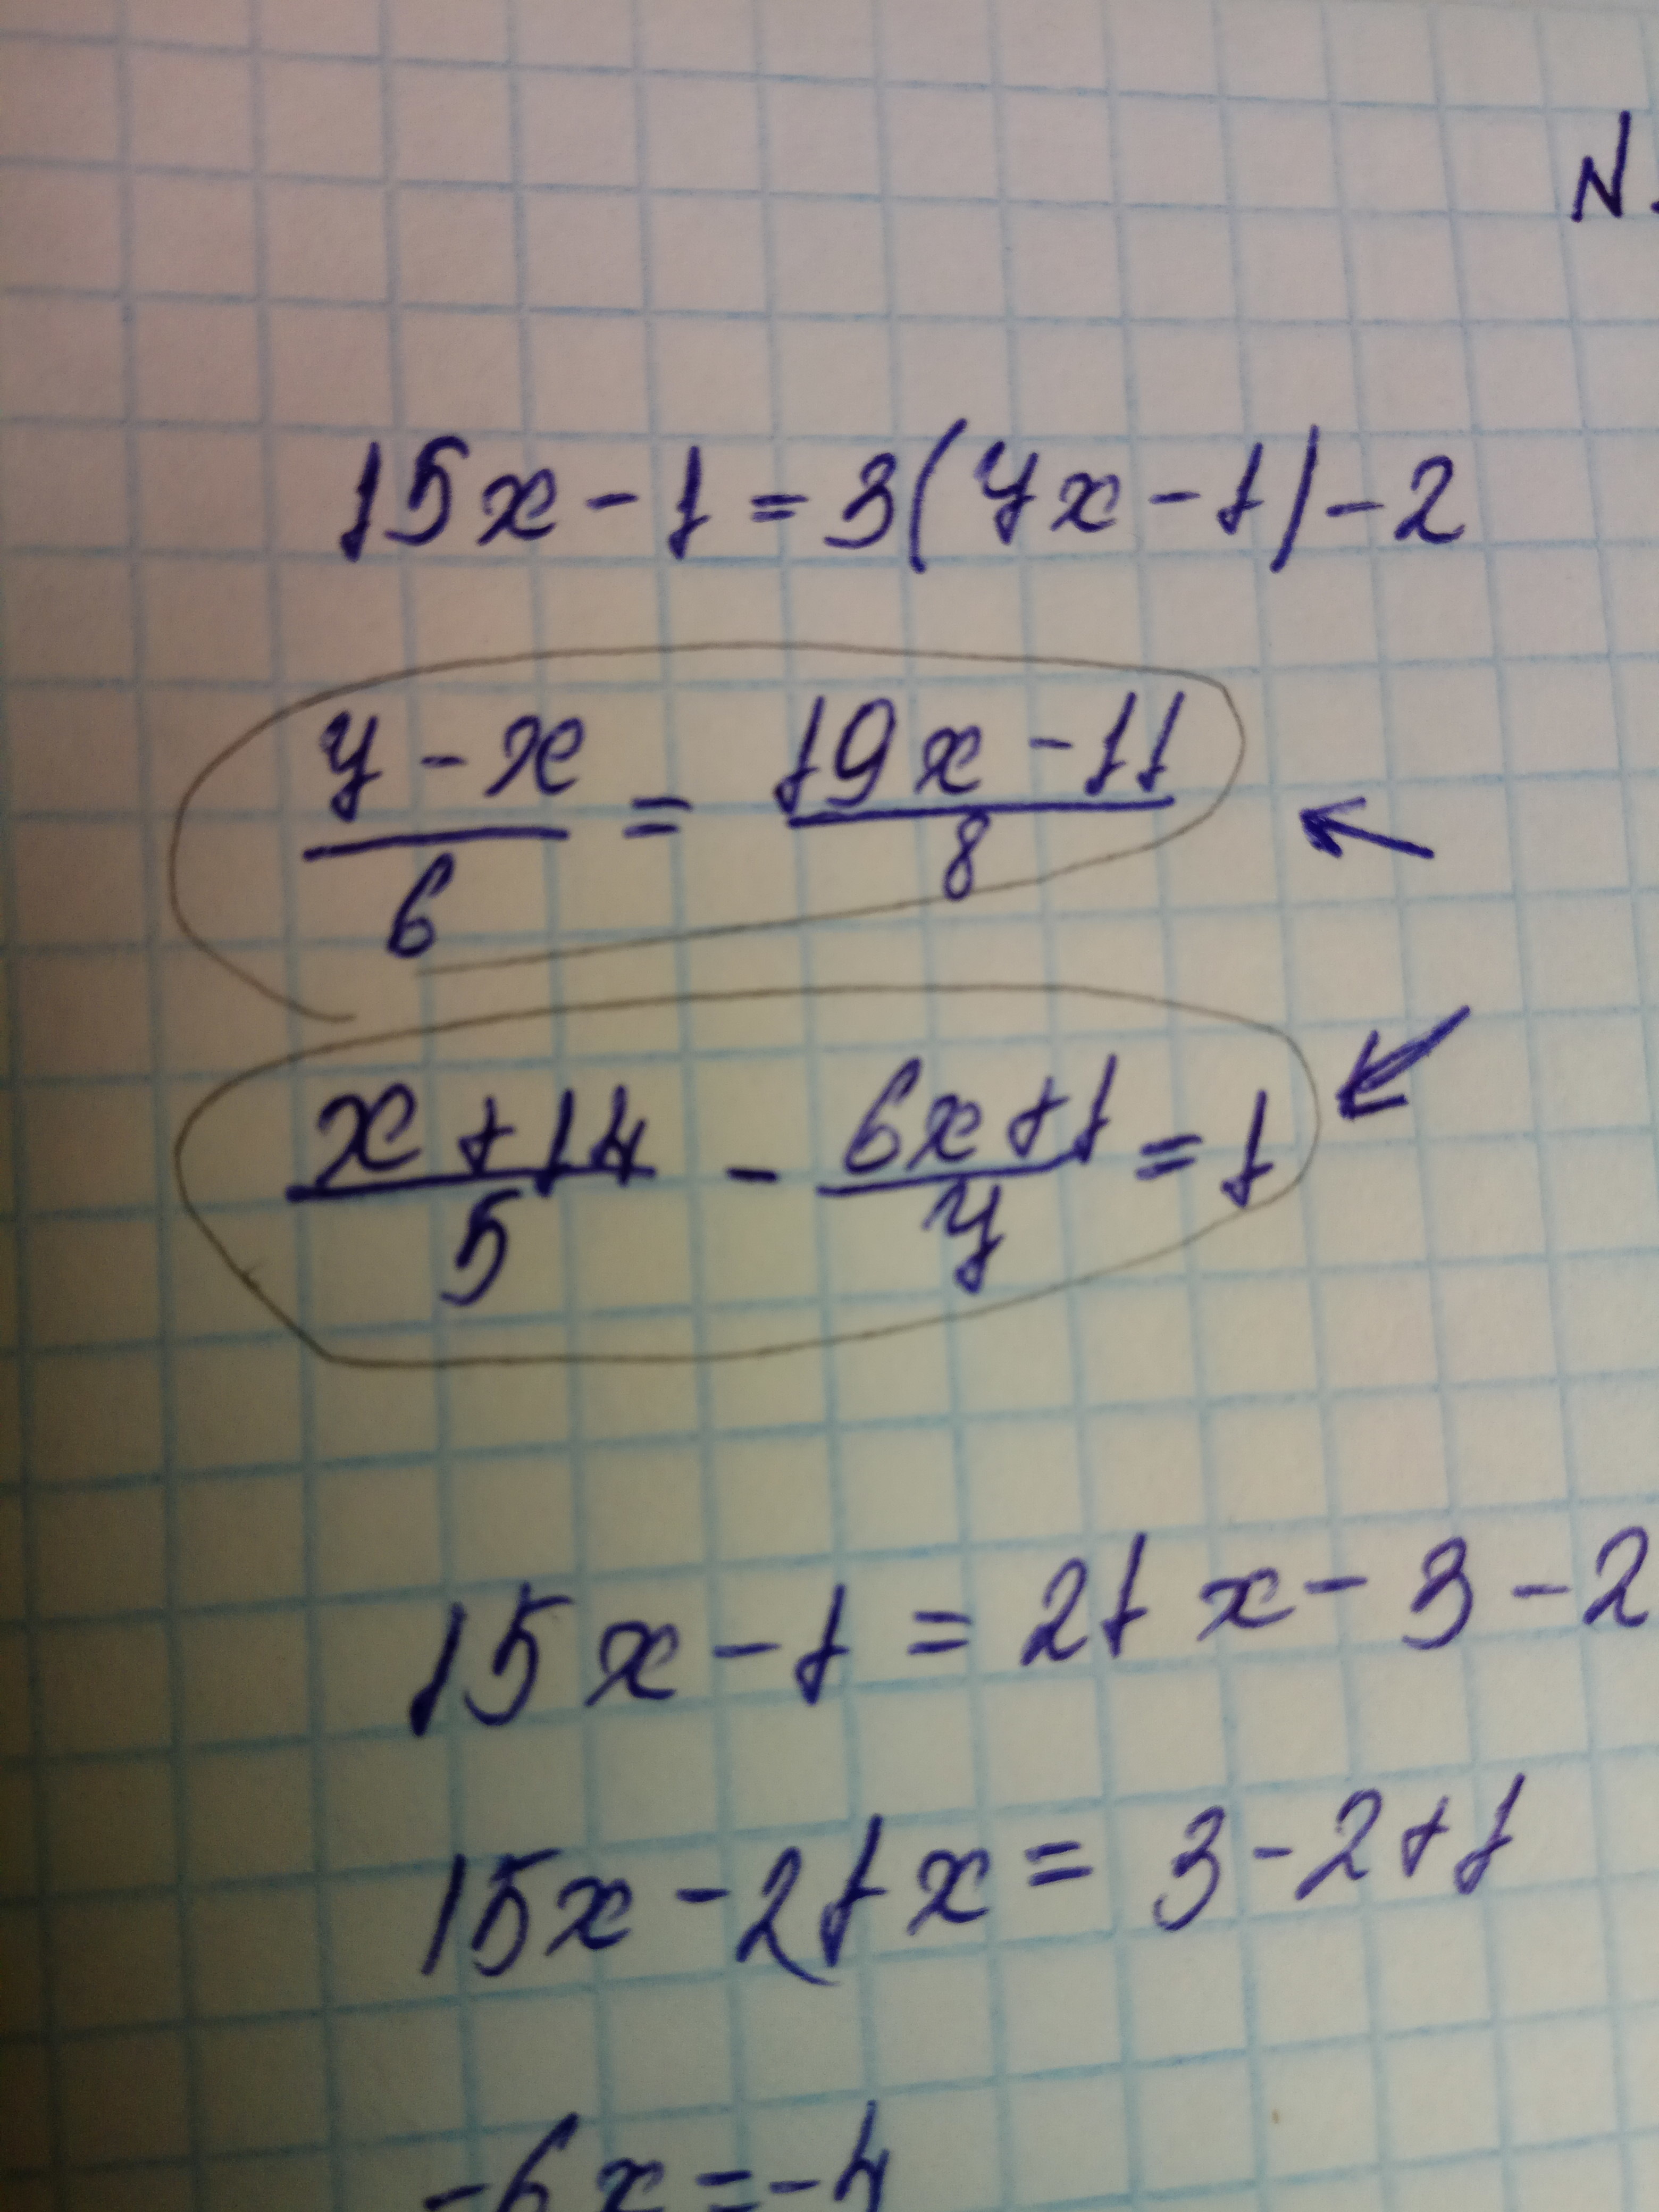 N.
15x - 1 = 3(7x - 1) - 2
7 - x / 6 = 19x - 11 / 8
x + 14 / 5 - 6x + 1 / 7 = 1
15x - 1 = 21x - 3 - 2
15x - 21x = 3 - 2 + 1
-6x = -4